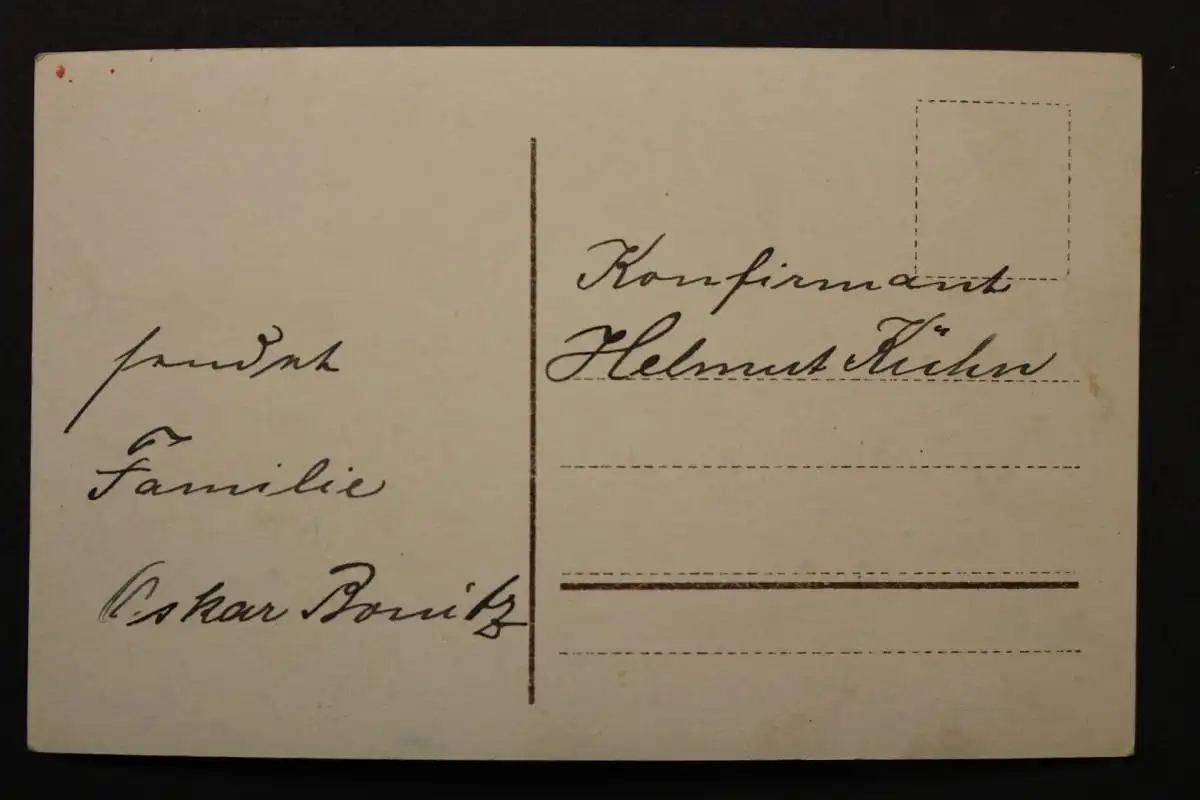 sendet
Familie
Oskar Bonitz
Konfirmant
Helmut Kühn